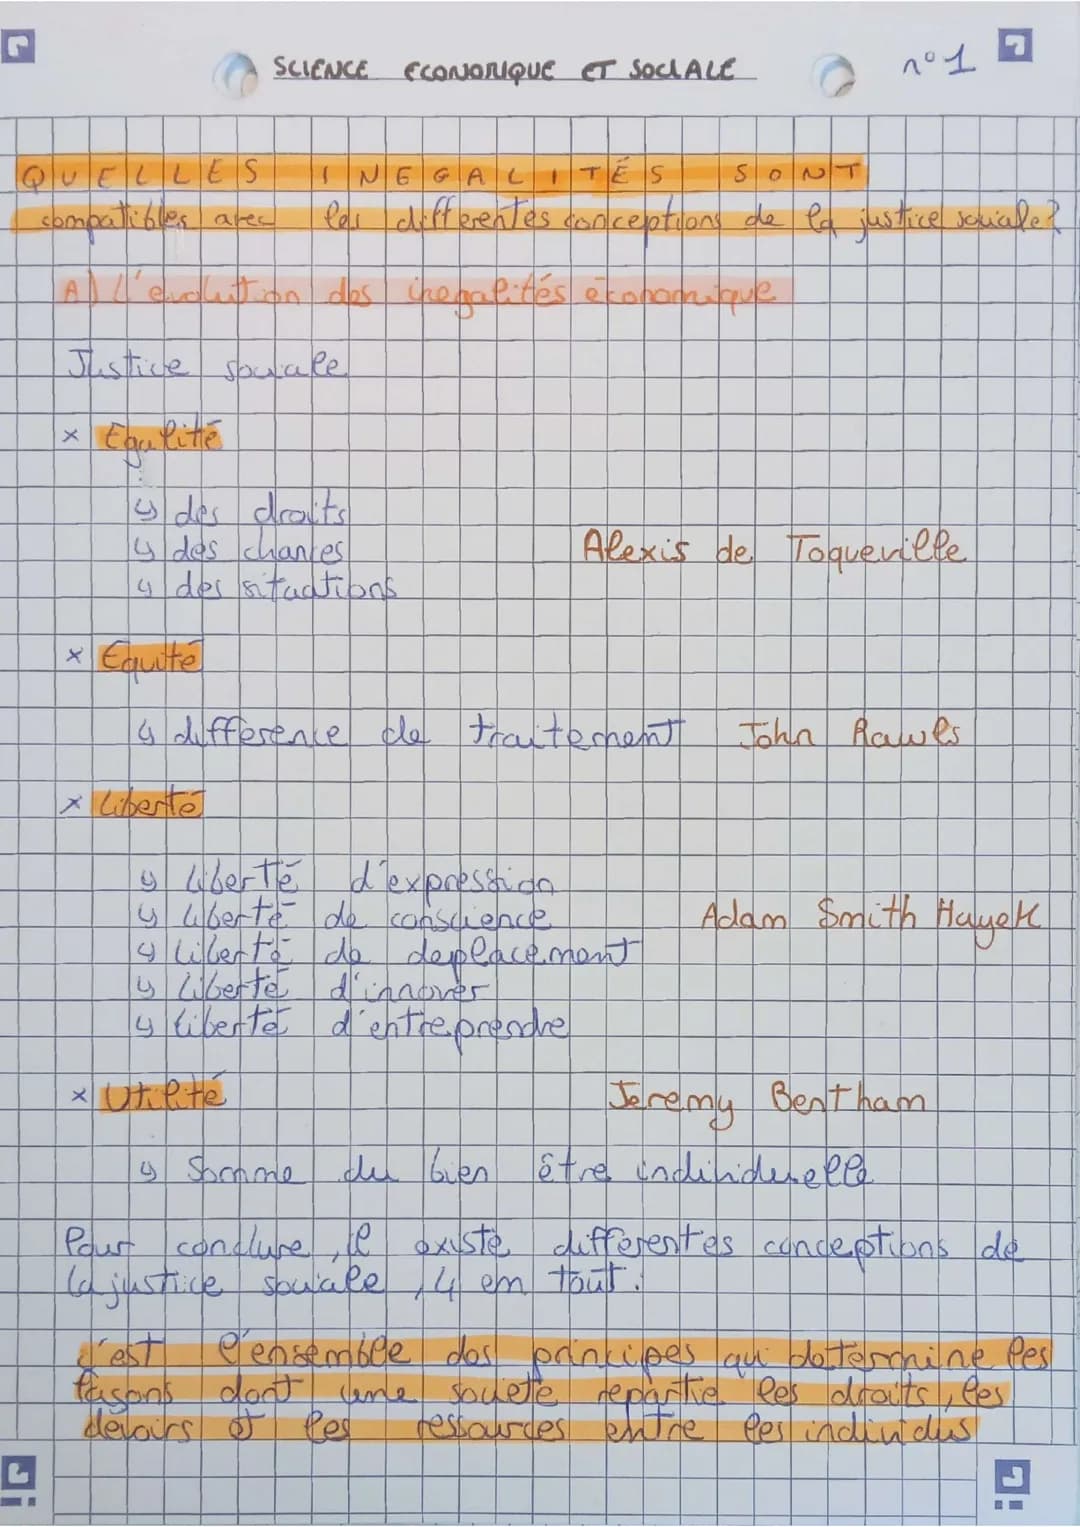 SCIENCE ECONOMIQUE ET SOCIALE
n°1
QUELLES INEGALITÉS SONT
compatibles avec les differentes conceptions de la justice sociale?
A) L'evolution des inegalités économique
Justice sociale
x Egalité
↳ des droits
↳ des chances
Alexis de Toqueville
↳ des situations
x Equité
↳ difference de traitement John Rawls
x Liberté
↳ liberté d'expression
↳ liberté de conscience Adam Smith Hayek
↳ liberté de deplacement
↳ liberté d'innover
↳ liberté d'entreprendre
x Utilité Jeremy Bentham
↳ Somme du bien être individuelle
Pour conclure, il existe differentes conceptions de
la justice sociale, 4 en tout.
c'est l'ensemble des principes qui determine les
façons dont une societé repartie les droits, les
devoirs et les ressources entre les individus